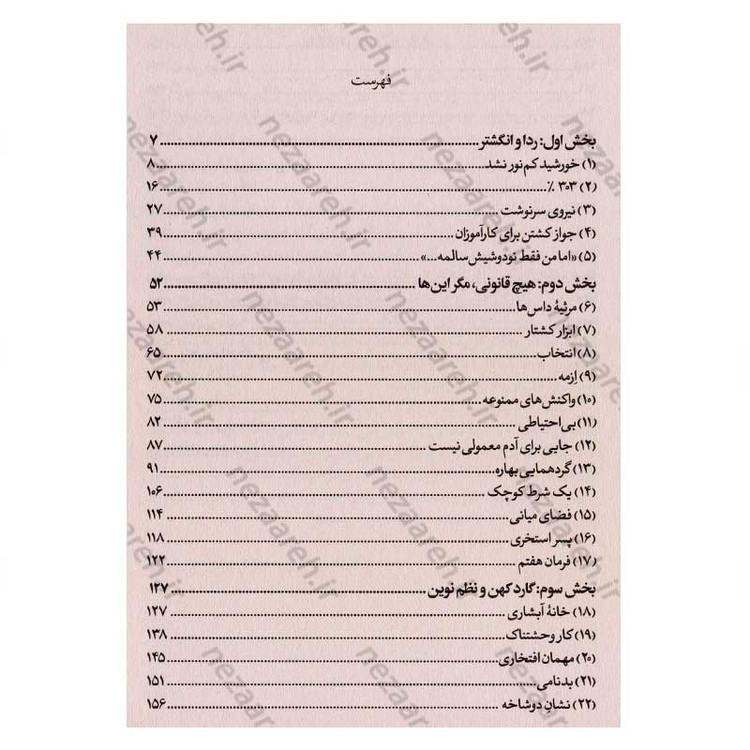 فهرست
بخش اول: ردا و انگشتر ۷
(۱) خورشید کم‌نور نشد ۸
(۲) ۳۰۳ ٪ ۱۶
(۳) نیروی سرنوشت ۲۷
(۴) جواز کشتن برای کارآموزان ۳۹
(۵) «اما من فقط نودوشیش سالمه...» ۴۴
بخش دوم: هیچ قانونی، مگر این‌ها ۵۲
(۶) مرثیهٔ داس‌ها ۵۳
(۷) ابزار کشتار ۵۸
(۸) انتخاب ۶۵
(۹) اِزمه ۷۲
(۱۰) واکنش‌های ممنوعه ۷۵
(۱۱) بی‌احتیاطی ۸۲
(۱۲) جایی برای آدم معمولی نیست ۸۷
(۱۳) گردهمایی بهاره ۹۱
(۱۴) یک شرط کوچک ۱۰۶
(۱۵) فضای میانی ۱۱۴
(۱۶) پسر استخری ۱۱۸
(۱۷) فرمان هفتم ۱۲۲
بخش سوم: گارد کهن و نظم نوین ۱۲۷
(۱۸) خانهٔ آبشاری ۱۲۷
(۱۹) کار وحشتناک ۱۳۸
(۲۰) مهمان افتخاری ۱۴۵
(۲۱) بدنامی ۱۵۱
(۲۲) نشانِ دوشاخه ۱۵۶
nezaareh.ir